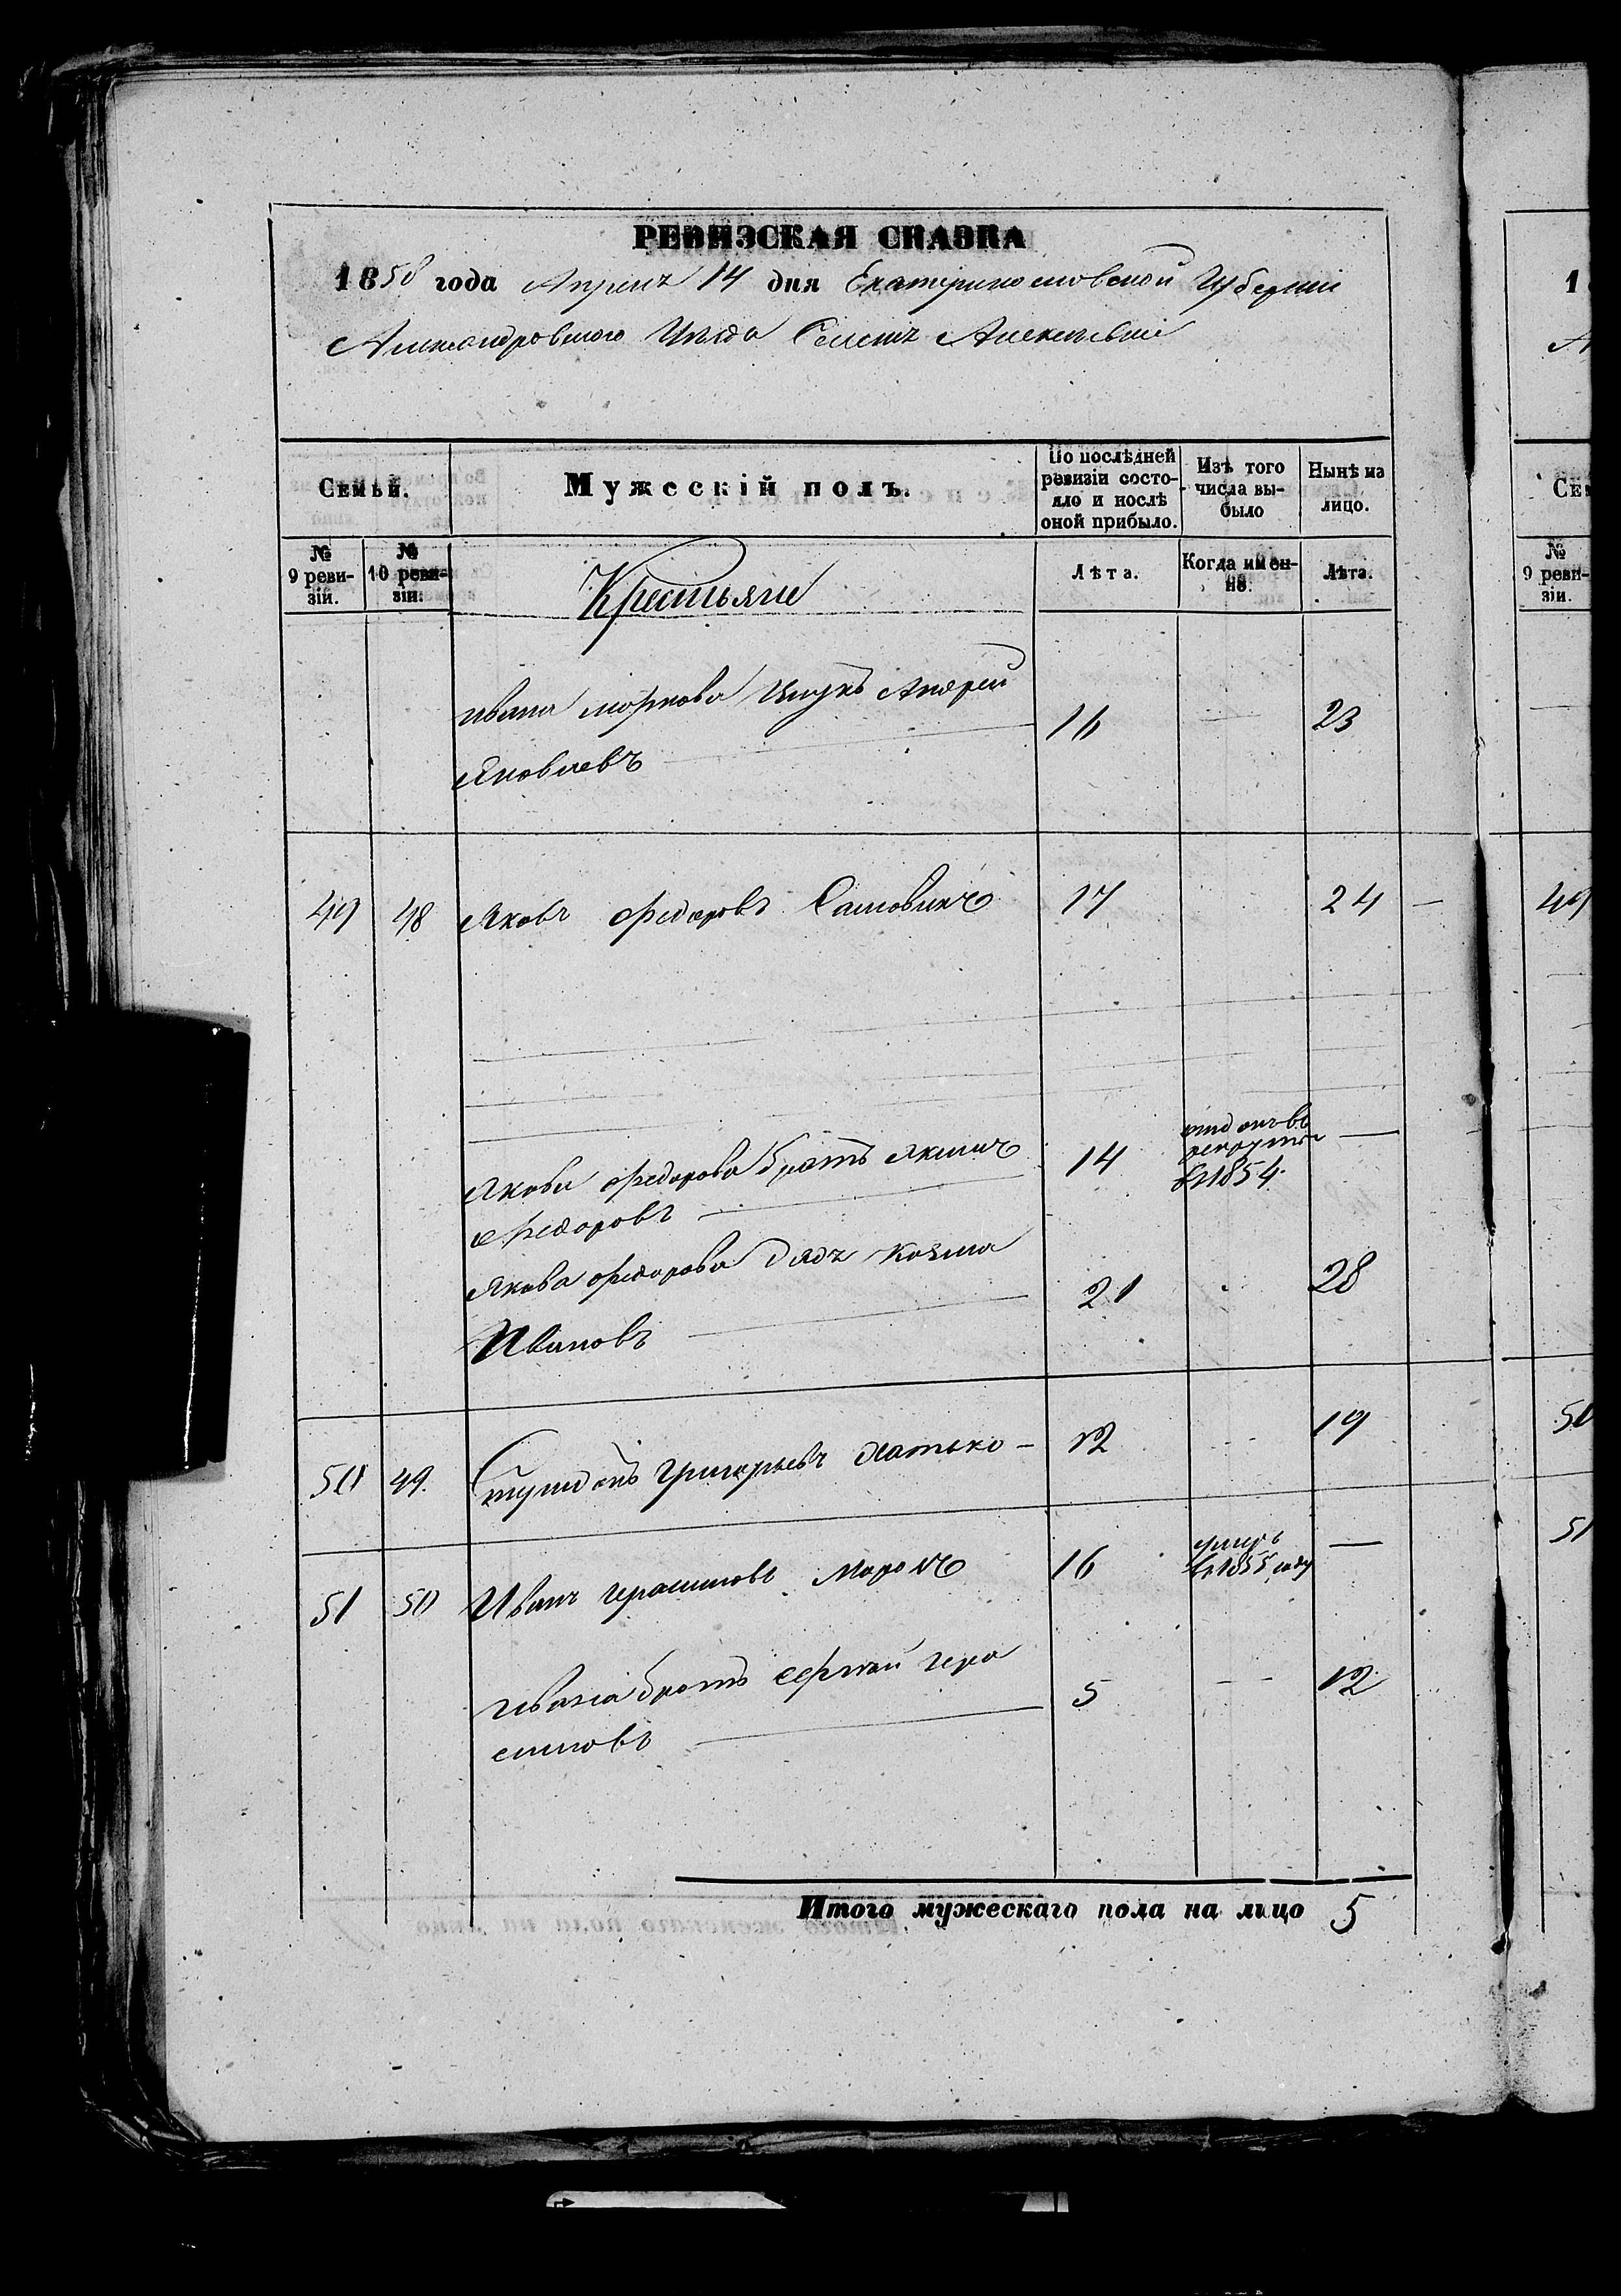 РЕВИЗСКАЯ СКАЗКА
1858 года Апреля 14 дня Екатеринославской Губернии
Александровского Уезда
Семьи.
Мужескій полъ.
По послѣдней ревизіи состо-
яло и послѣ
оной прибыло.
Изъ того
числа вы-
было
Нынѣ на
лицо.
№
9 реви-
зіи.
№
10 реви-
зіи.
Крестьяне
Лѣта.
Когда имен-
но.
Лѣта.
Ивана Маркова Внукъ Андрей
Яковлевъ
16 23
49 48 Яковъ Федоровъ 17 24
Якова Федорова братъ
Федоровъ
14
въ 1854
Якова Федорова дядя Козма
Ивановъ
21 28
50 49. Григорьевъ 12 19
51 50 Иванъ Герасимовъ 16 умеръ
въ 1855 году
Ивана братъ Сергѣй Гера
симовъ
5 12
Итого мужескаго пола на лицо 5
1
Се
№
9 реви-
зіи.
49
50
51